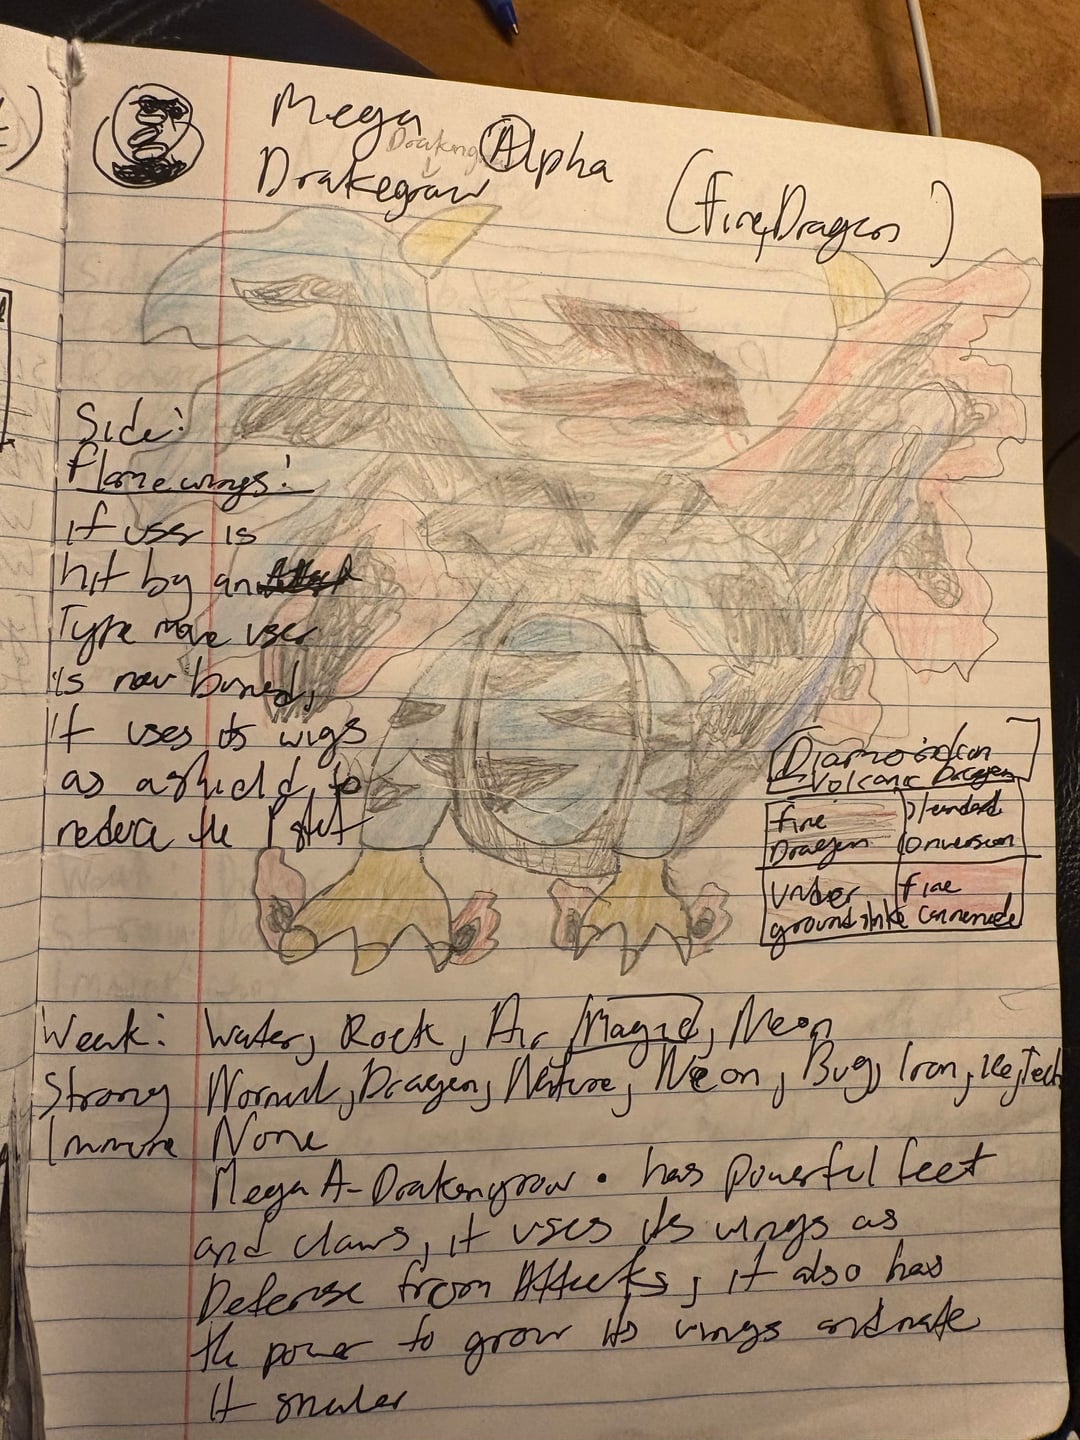 Mega Alpha
Drakengrow
Drakegrow
(Fire, Dragon)
Side:
Flame wings:
if user is
hit by an
Type move user
is now burned,
it uses its wigs
as a shield to
reduce the
Volcanic Dragon
Fire
Dragon
conversion
Under
ground strike
Fire
Cannonade
Weak: Water, Rock, Air, Magic, Neon
Strong Normal, Dragon, Nature, Neon, Bug, Iron, Ice, Tech
Immune None
Mega A-Drakengrow . has powerful feet
and claws, it uses its wings as
Defense from Attacks, it also has
the power to grow its wings and make
it smaler